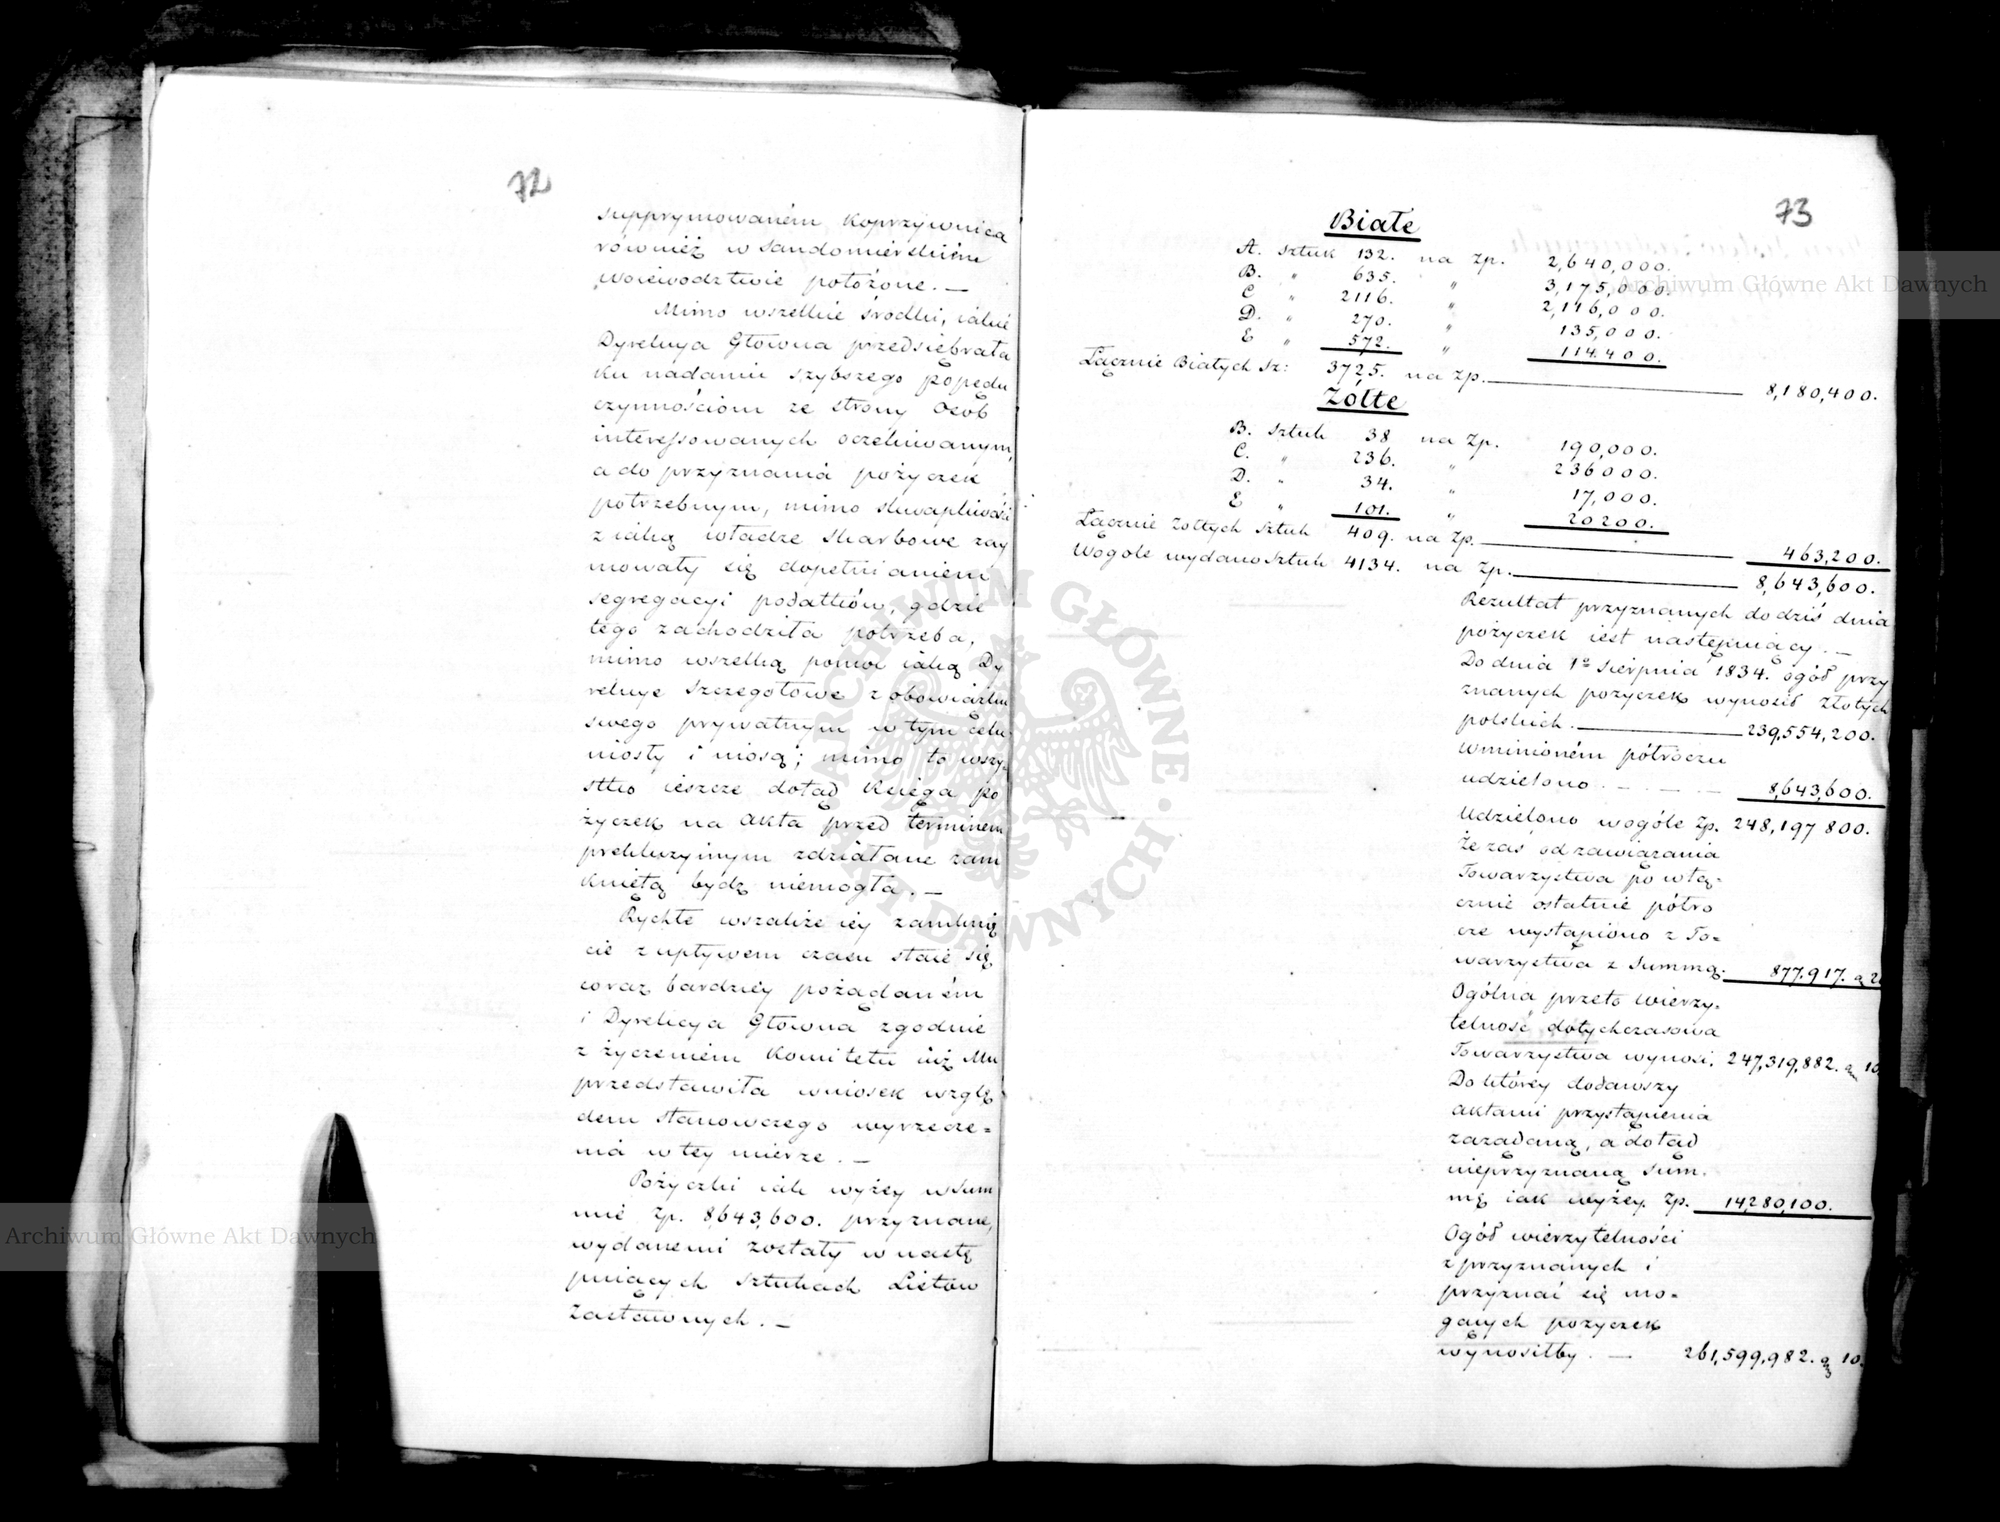 72
supprymowaném Koprzywnica
również w Sandomierskiém
Woiewodztwie położone. —
Mimo wszelkie środki, iakie
Dyrekcya Główna przedsiębrała
ku nadaniu szybszego popędu
czynnościom ze strony Osób
interessowanych oczekiwanym,
a do przyznania pożyczek
potrzebnym, mimo skwapliwości
z iaką władze Skarbowe zay
mowały się dopełnianiem
segregacyi podatków, gdzie
tego zachodziła potrzeba,
mimo wszelką pomoc iaką Dy
rekcye Szczegółowe z obowiązku
swego prywatnym w tym celu
niosły i niosą; mimo to wszy-
stko ieszcze dotąd Księga po
życzek na Akta przed terminem
prekluzyinym zdziałane zam
knięta bydź niemogła. —
Rychłe wszakże iéy zamknię
cie z upływem czasu staie się
coraz bardziéy pożądaném
i Dyrekcya Główna zgodnie
z życzeniem Komitetu iuż Mu
przedstawiła wniosek wzglę
dem stanowczego wyrzecze=
nia w téy mierze. —
Pożyczki iak wyżéy w Sum
mie Zp. 8,643,600. przyznane,
wydanemi zostały w nastę
puiących sztukach Listów
Zastawnych. —
73
Białe
A. Sztuk 132. na Zp. 2,640,000.
B. " 635. " 3,175,000.
C " 2116. " 2,116,000.
D. " 270. " 135,000.
E " 572. " 114.400.
Łącznie Białych Sz: 3725. na Zp. 8,180,400.
Żółte
B. Sztuk 38 na Zp. 190,000.
C. " 236. " 236000.
D. " 34. " 17,000.
E " 101. " 20200.
Łącznie Żółtych Sztuk 409. na Zp. 463,200.
Wogóle wydano Sztuk 4134. na Zp. 8,643,600.
Rezultat przyznanych do dziś dnia
pożyczek iest następuiący. —
Do dnia 1º Sierpnia 1834. ogół przy
znanych pożyczek wynosił Złotych
polskich. 239,554,200.
W minioném półroczu
udzielono . — . — . — 8,643,600.
Udzielono wogóle Zp. 248,197 800.
Że zaś od zawiązania
Towarzystwa po włą-
cznie ostatnie półro
cze wystąpiono z To=
warzystwa z Summą. 877.917. g 2
Ogólna przeto wierzy-
telność dotychczasowa
Towarzystwa wynosi. 247,319,882. g 10.
Do któréy dodawszy
aktami przystąpienia
zażądaną, a dotąd
nieprzyznaną Sum.
mę iak wyżéy. Zp. 14,280,100.
Ogół wierzytelności
z przyznanych i
przyznać się mo=
gących pożyczek
wynosiłby . — 261,599,982. g 10.
Archiwum Główne Akt Dawnych
Archiwum Główne Akt Dawnych
ARCHIWUM GŁÓWNE · AKT DAWNYCH